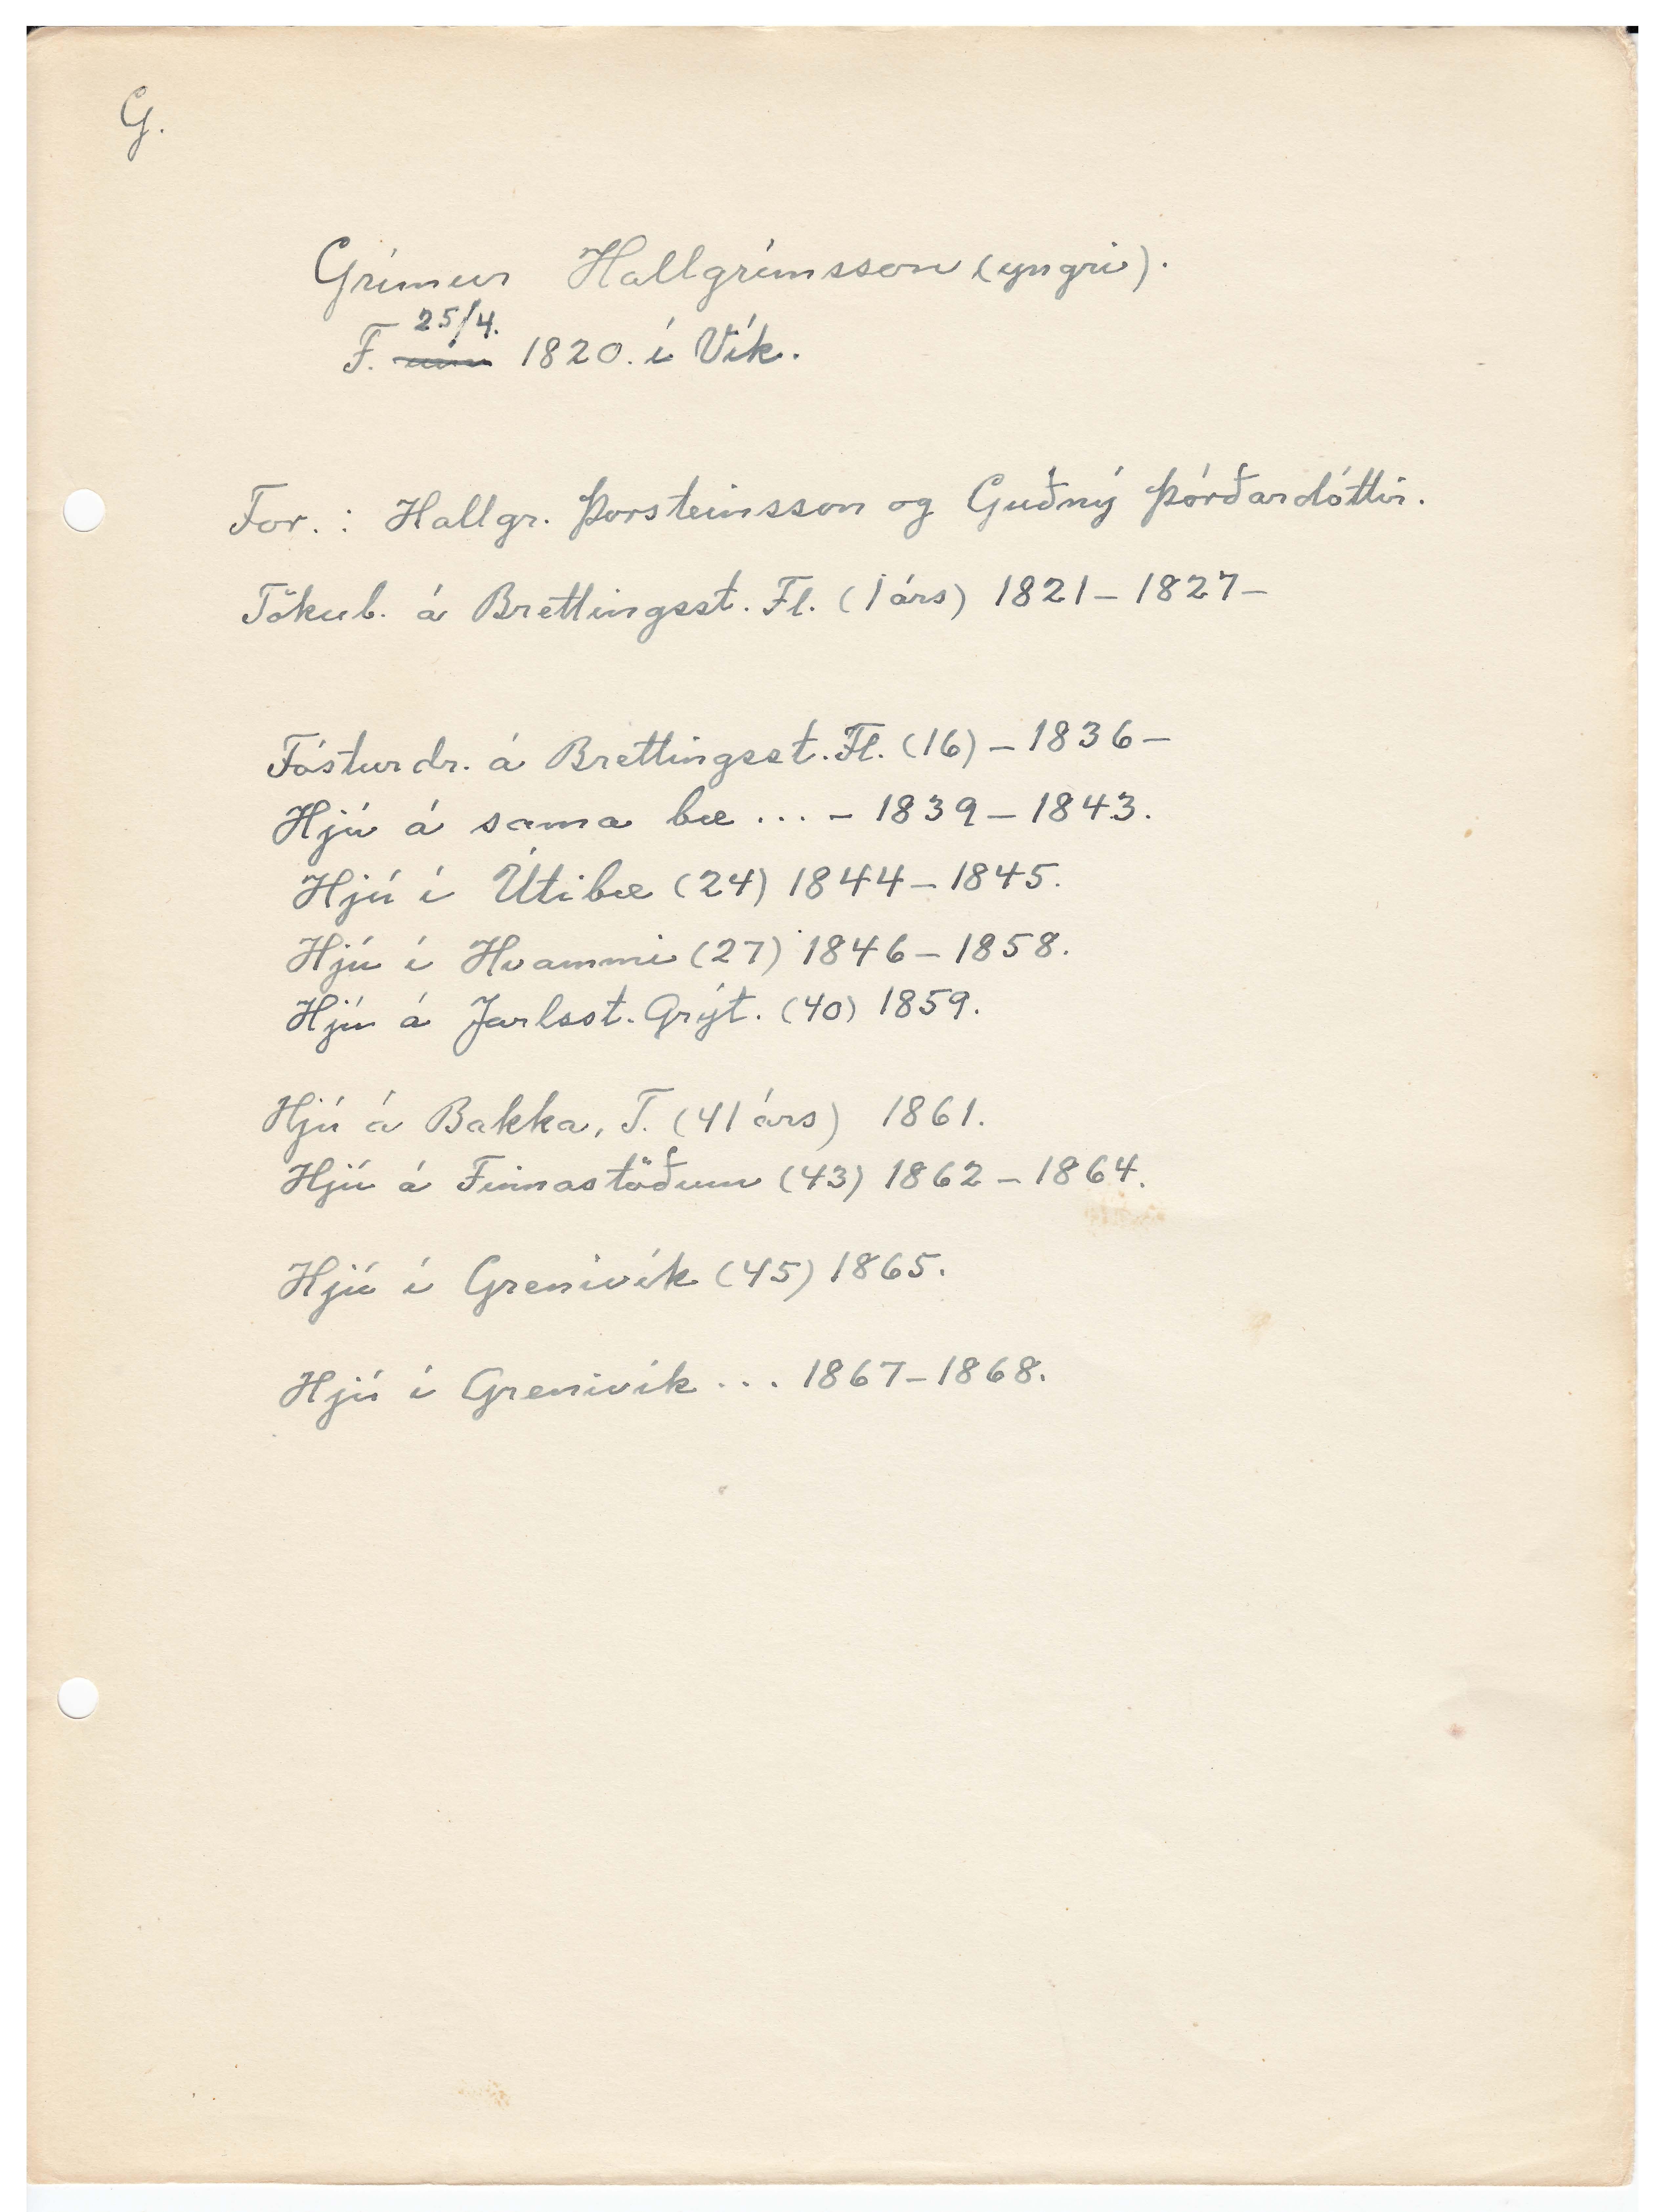 G.
Grímur Hallgrímsson (yngri).
25/4.
F. 1820. í Vík.
For.: Hallgr. Þorsteinsson og Guðný Þórðardóttir.
Tökub. á Brettingsst. Fl. (1 árs) 1821 – 1827 –
Fósturdr. á Brettingsst. Fl. (16) – 1836 –
Hjú á sama bæ ... – 1839 – 1843.
Hjú í Útibæ (24) 1844 – 1845.
Hjú í Hvammi (27) 1846 – 1858.
Hjú á Jarlsst. Grýt. (40) 1859.
Hjú á Bakka, T. (41 árs) 1861.
Hjú á Finnastöðum (43) 1862 – 1864.
Hjú í Grenivík (45) 1865.
Hjú í Grenivík ... 1867 – 1868.